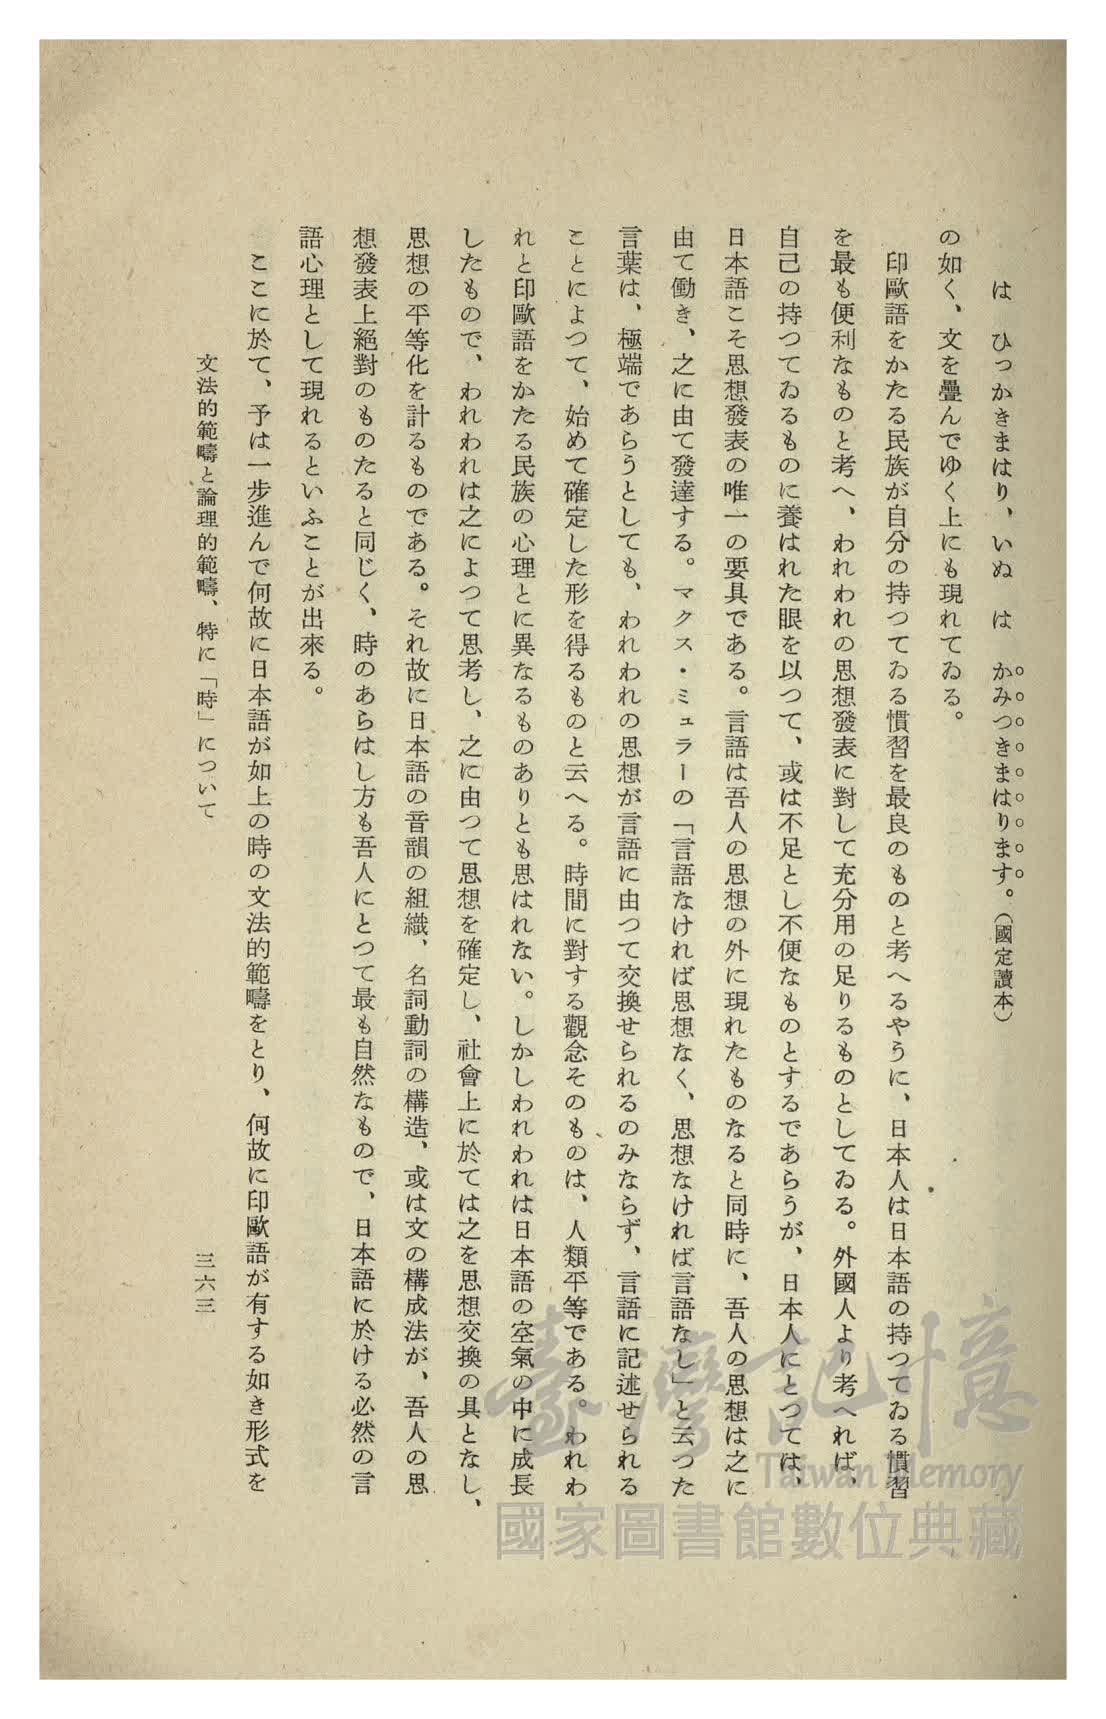 は　ひっかきまはり、いぬ　は　かみつきまはります。（國定讀本）
の如く、文を疊んでゆく上にも現れてゐる。
印歐語をかたる民族が自分の持つてゐる慣習を最良のものと考へるやうに、日本人は日本語の持つてゐる慣習
を最も便利なものと考へ、われわれの思想發表に對して充分用の足りるものとしてゐる。外國人より考へれば、
自己の持つてゐるものに養はれた眼を以つて、或は不足とし不便なものとするであらうが、日本人にとつては、
日本語こそ思想發表の唯一の要具である。言語は吾人の思想の外に現れたものなると同時に、吾人の思想は之に
由て働き、之に由て發達する。マクス・ミュラーの「言語なければ思想なく、思想なければ言語なし」と云つた
言葉は、極端であらうとしても、われわれの思想が言語に由つて交換せられるのみならず、言語に記述せられる
ことによつて、始めて確定した形を得るものと云へる。時間に對する觀念そのものは、人類平等である。われわ
れと印歐語をかたる民族の心理とに異なるものありとも思はれない。しかしわれわれは日本語の空氣の中に成長
したもので、われわれは之によつて思考し、之に由つて思想を確定し、社會上に於ては之を思想交換の具となし、
思想の平等化を計るものである。それ故に日本語の音韻の組織、名詞動詞の構造、或は文の構成法が、吾人の思
想發表上絕對のものたると同じく、時のあらはし方も吾人にとつて最も自然なもので、日本語に於ける必然の言
語心理として現れるといふことが出來る。
ここに於て、予は一步進んで何故に日本語が如上の時の文法的範疇をとり、何故に印歐語が有する如き形式を
文法的範疇と論理的範疇、特に「時」について
三六三
臺灣記憶
Taiwan Memory
國家圖書館數位典藏